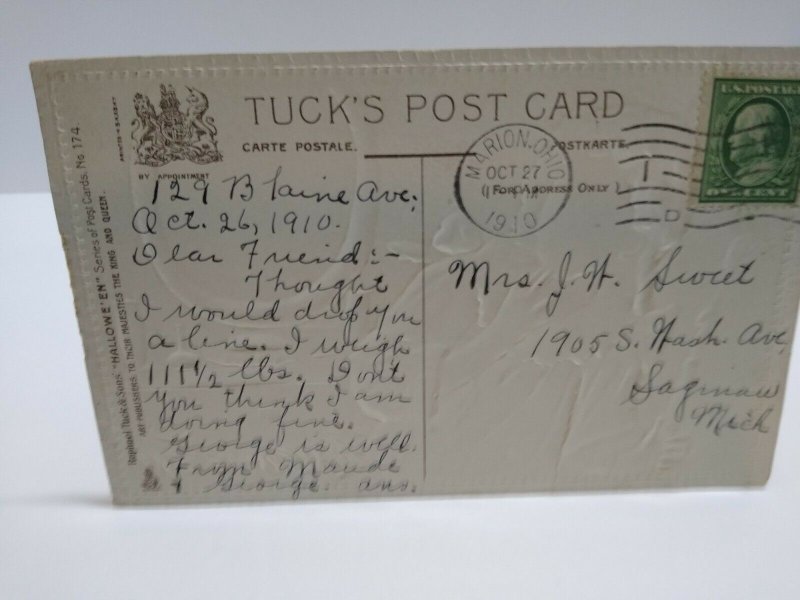 TUCK'S POST CARD
CARTE POSTALE.
POSTKARTE
(FOR ADDRESS ONLY)
BY APPOINTMENT
Raphael Tuck & Sons' "HALLOWE'EN" Series of Post Cards. No 174.
ART PUBLISHERS TO THEIR MAJESTIES THE KING AND QUEEN.
MARION, OHIO
OCT 27
1910
U.S. POSTAGE
129 Blaine Ave.
Oct. 26, 1910.
Dear Friend:-
Thought
I would drop you
a line. I weigh
111 1/2 lbs. Dont
you think I am
doing fine.
George is well.
From Maude
& George. ans.
Mrs. J. W. Sweet
1905 S. Wash. Ave
Saginaw
Mich